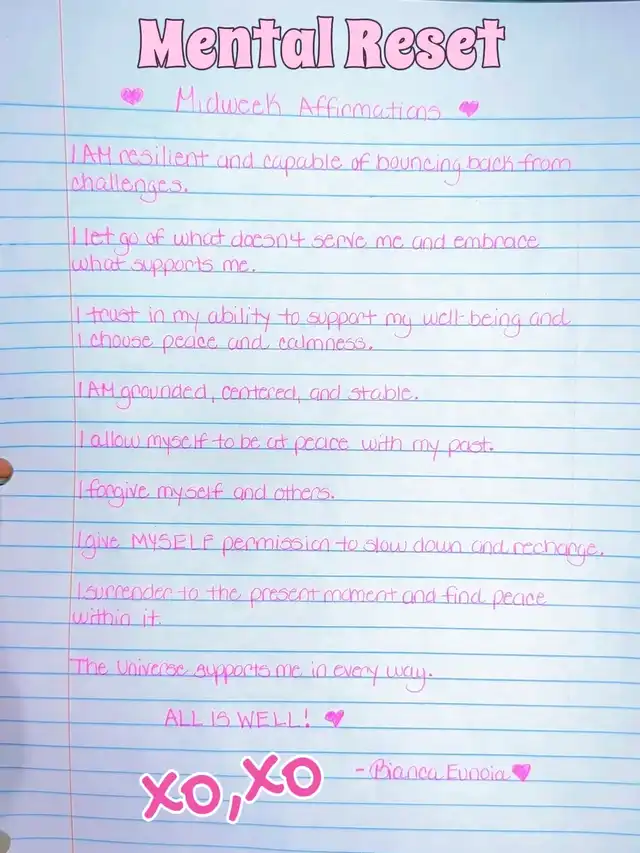 Mental Reset
Midweek Affirmations
I AM resilient and capable of bouncing back from
challenges.
I let go of what doesn't serve me and embrace
what supports me.
I trust in my ability to support my well-being and
I choose peace and calmness.
I AM grounded, centered, and stable.
I allow myself to be at peace with my past.
I forgive myself and others.
I give MYSELF permission to slow down and recharge.
I surrender to the present moment and find peace
within it.
The Universe supports me in every way.
ALL IS WELL!
-Bianca Eunoia
XO, XO